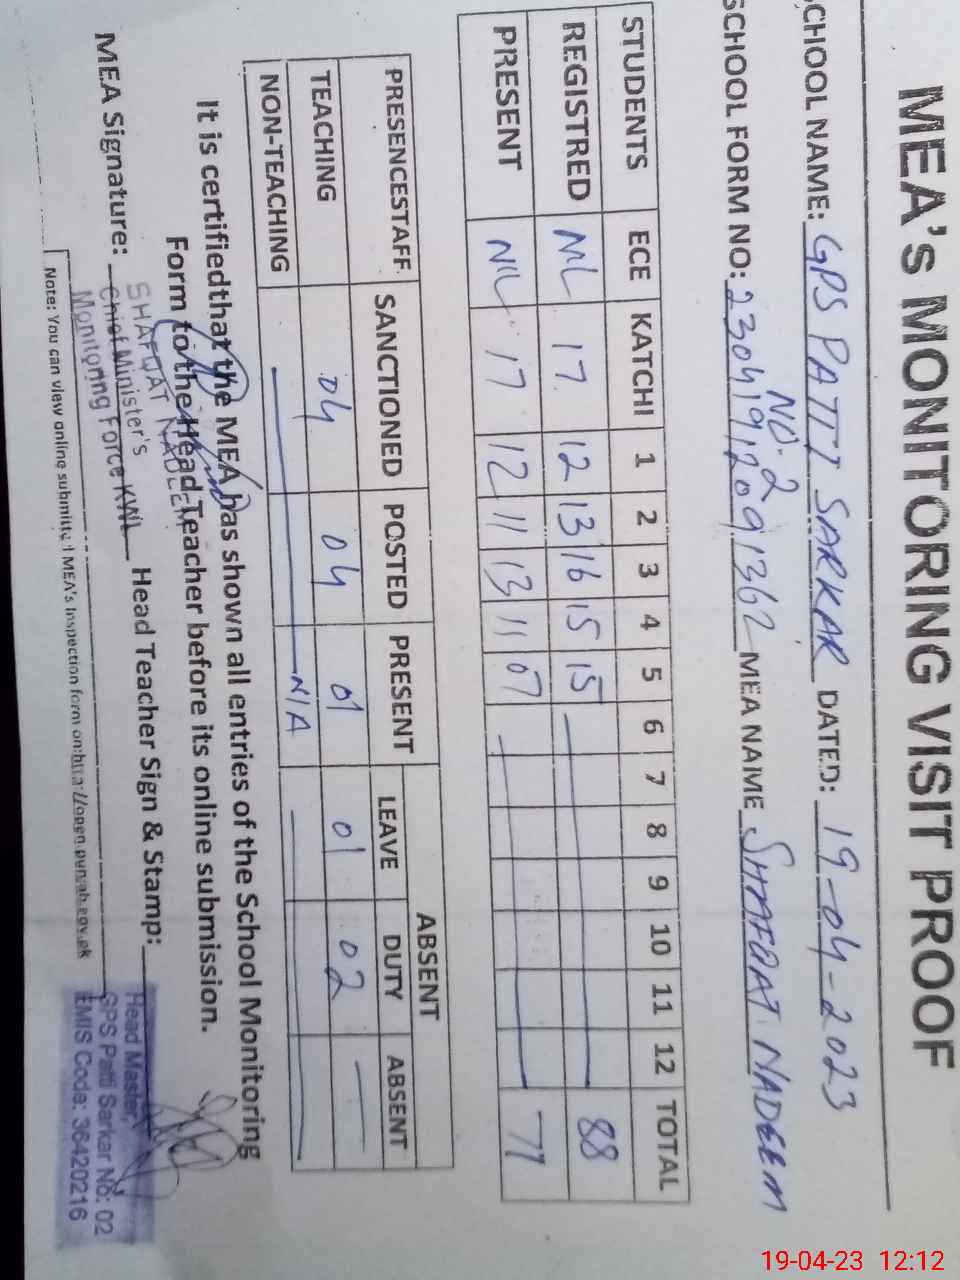 MEA's MONITORING VISIT PROOF
SCHOOL NAME: GPS PATTI SARKAR NO. 2 DATED: 19-04-2023
SCHOOL FORM NO: 23041912091362 MEA NAME SHAFQAT NADEEM
STUDENTS ECE KATCHI 1 2 3 4 5 6 7 8 9 10 11 12 TOTAL
REGISTRED NIL 17 12 13 16 15 15 88
PRESENT NIL 17 12 11 13 11 07 77
PRESENCESTAFF SANCTIONED POSTED PRESENT ABSENT
LEAVE DUTY ABSENT
TEACHING 04 04 01 01 02 —
NON-TEACHING N/A
It is certifiedthat the MEA has shown all entries of the School Monitoring
Form to the Head Teacher before its online submission.
MEA Signature: Head Teacher Sign & Stamp:
SHAFQAT NADEEM
Chief Minister's
Monitoring Force KWL
Head Master,
GPS Patti Sarkar No: 02
EMIS Code: 36420216
Note: You can view online submitted MEA's Inspection form on:http://open.punjab.gov.pk
19-04-23 12:12